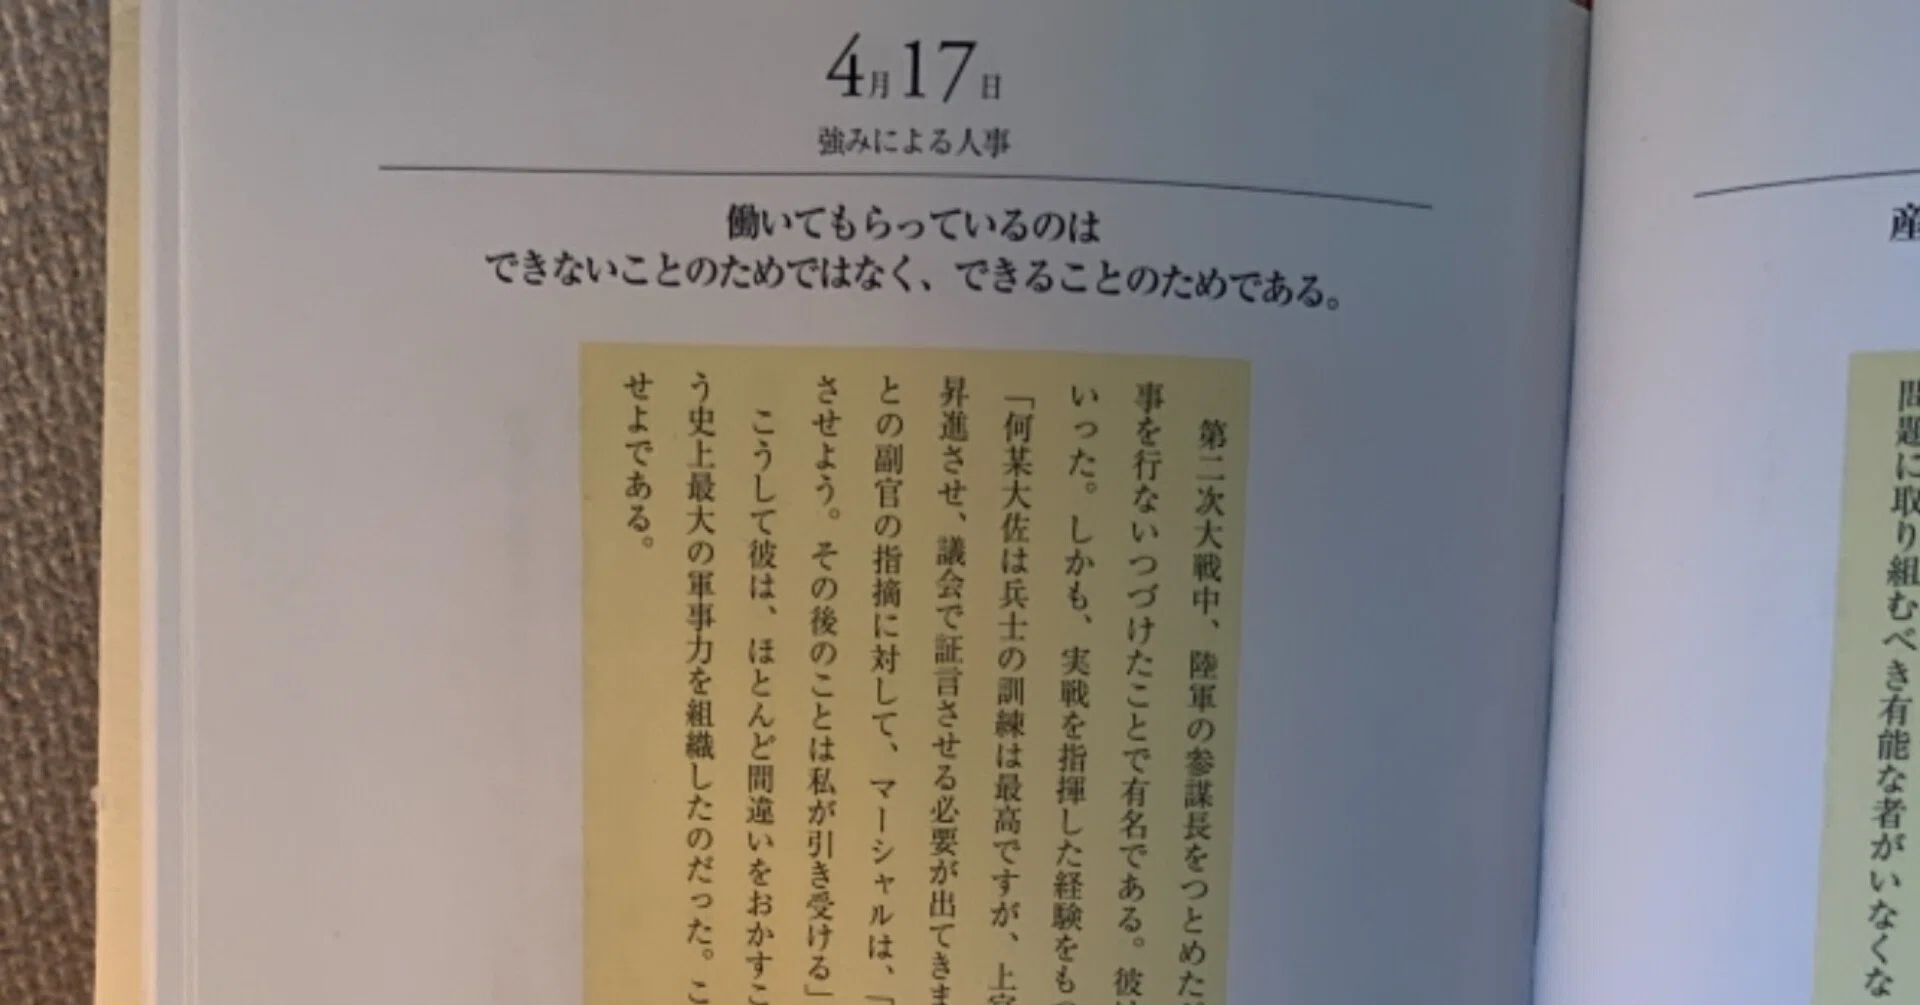 4月17日
強みによる人事
働いてもらっているのは
できないことのためではなく、できることのためである。
第二次大戦中、陸軍の参謀長をつとめた
事を行ないつづけたことで有名である。彼
いった。しかも、実戦を指揮した経験をも
「何某大佐は兵士の訓練は最高ですが、上官
昇進させ、議会で証言させる必要が出てきま
との副官の指摘に対して、マーシャルは、「
させよう。その後のことは私が引き受ける」
こうして彼は、ほとんど間違いをおかすこ
う史上最大の軍事力を組織したのだった。こ
せよである。
産
問題に取り組むべき有能な者がいなくな